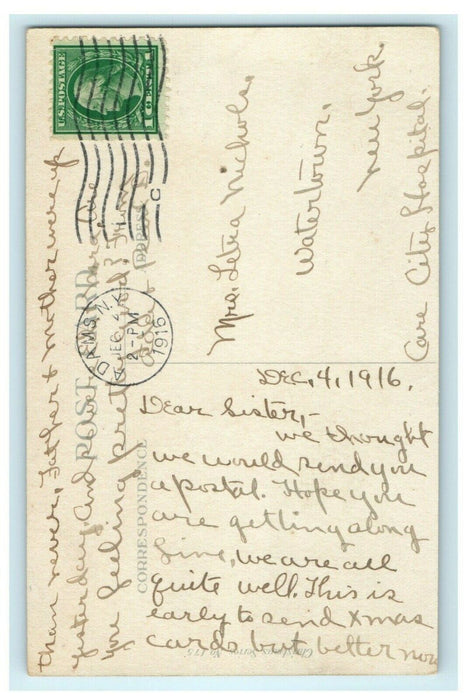 U.S. POSTAGE
1 CENT 1
ADAMS, N.Y.
DEC 4
2-PM
1916
POST CARD
ADDRESS
CORRESPONDENCE
Mrs. Letra Nichols.
Watertown,
New York.
Care City Hospital.
Dec, 4, 1916.
Dear Sister,-
we thought
we would send you
a postal. Hope you
are getting along
fine, we are all
quite well. This is
early to send Xmas
cards but better now
than never, Father & Mother were up
yesterday and
you feeling pretty good?
Christmas Series No. 175